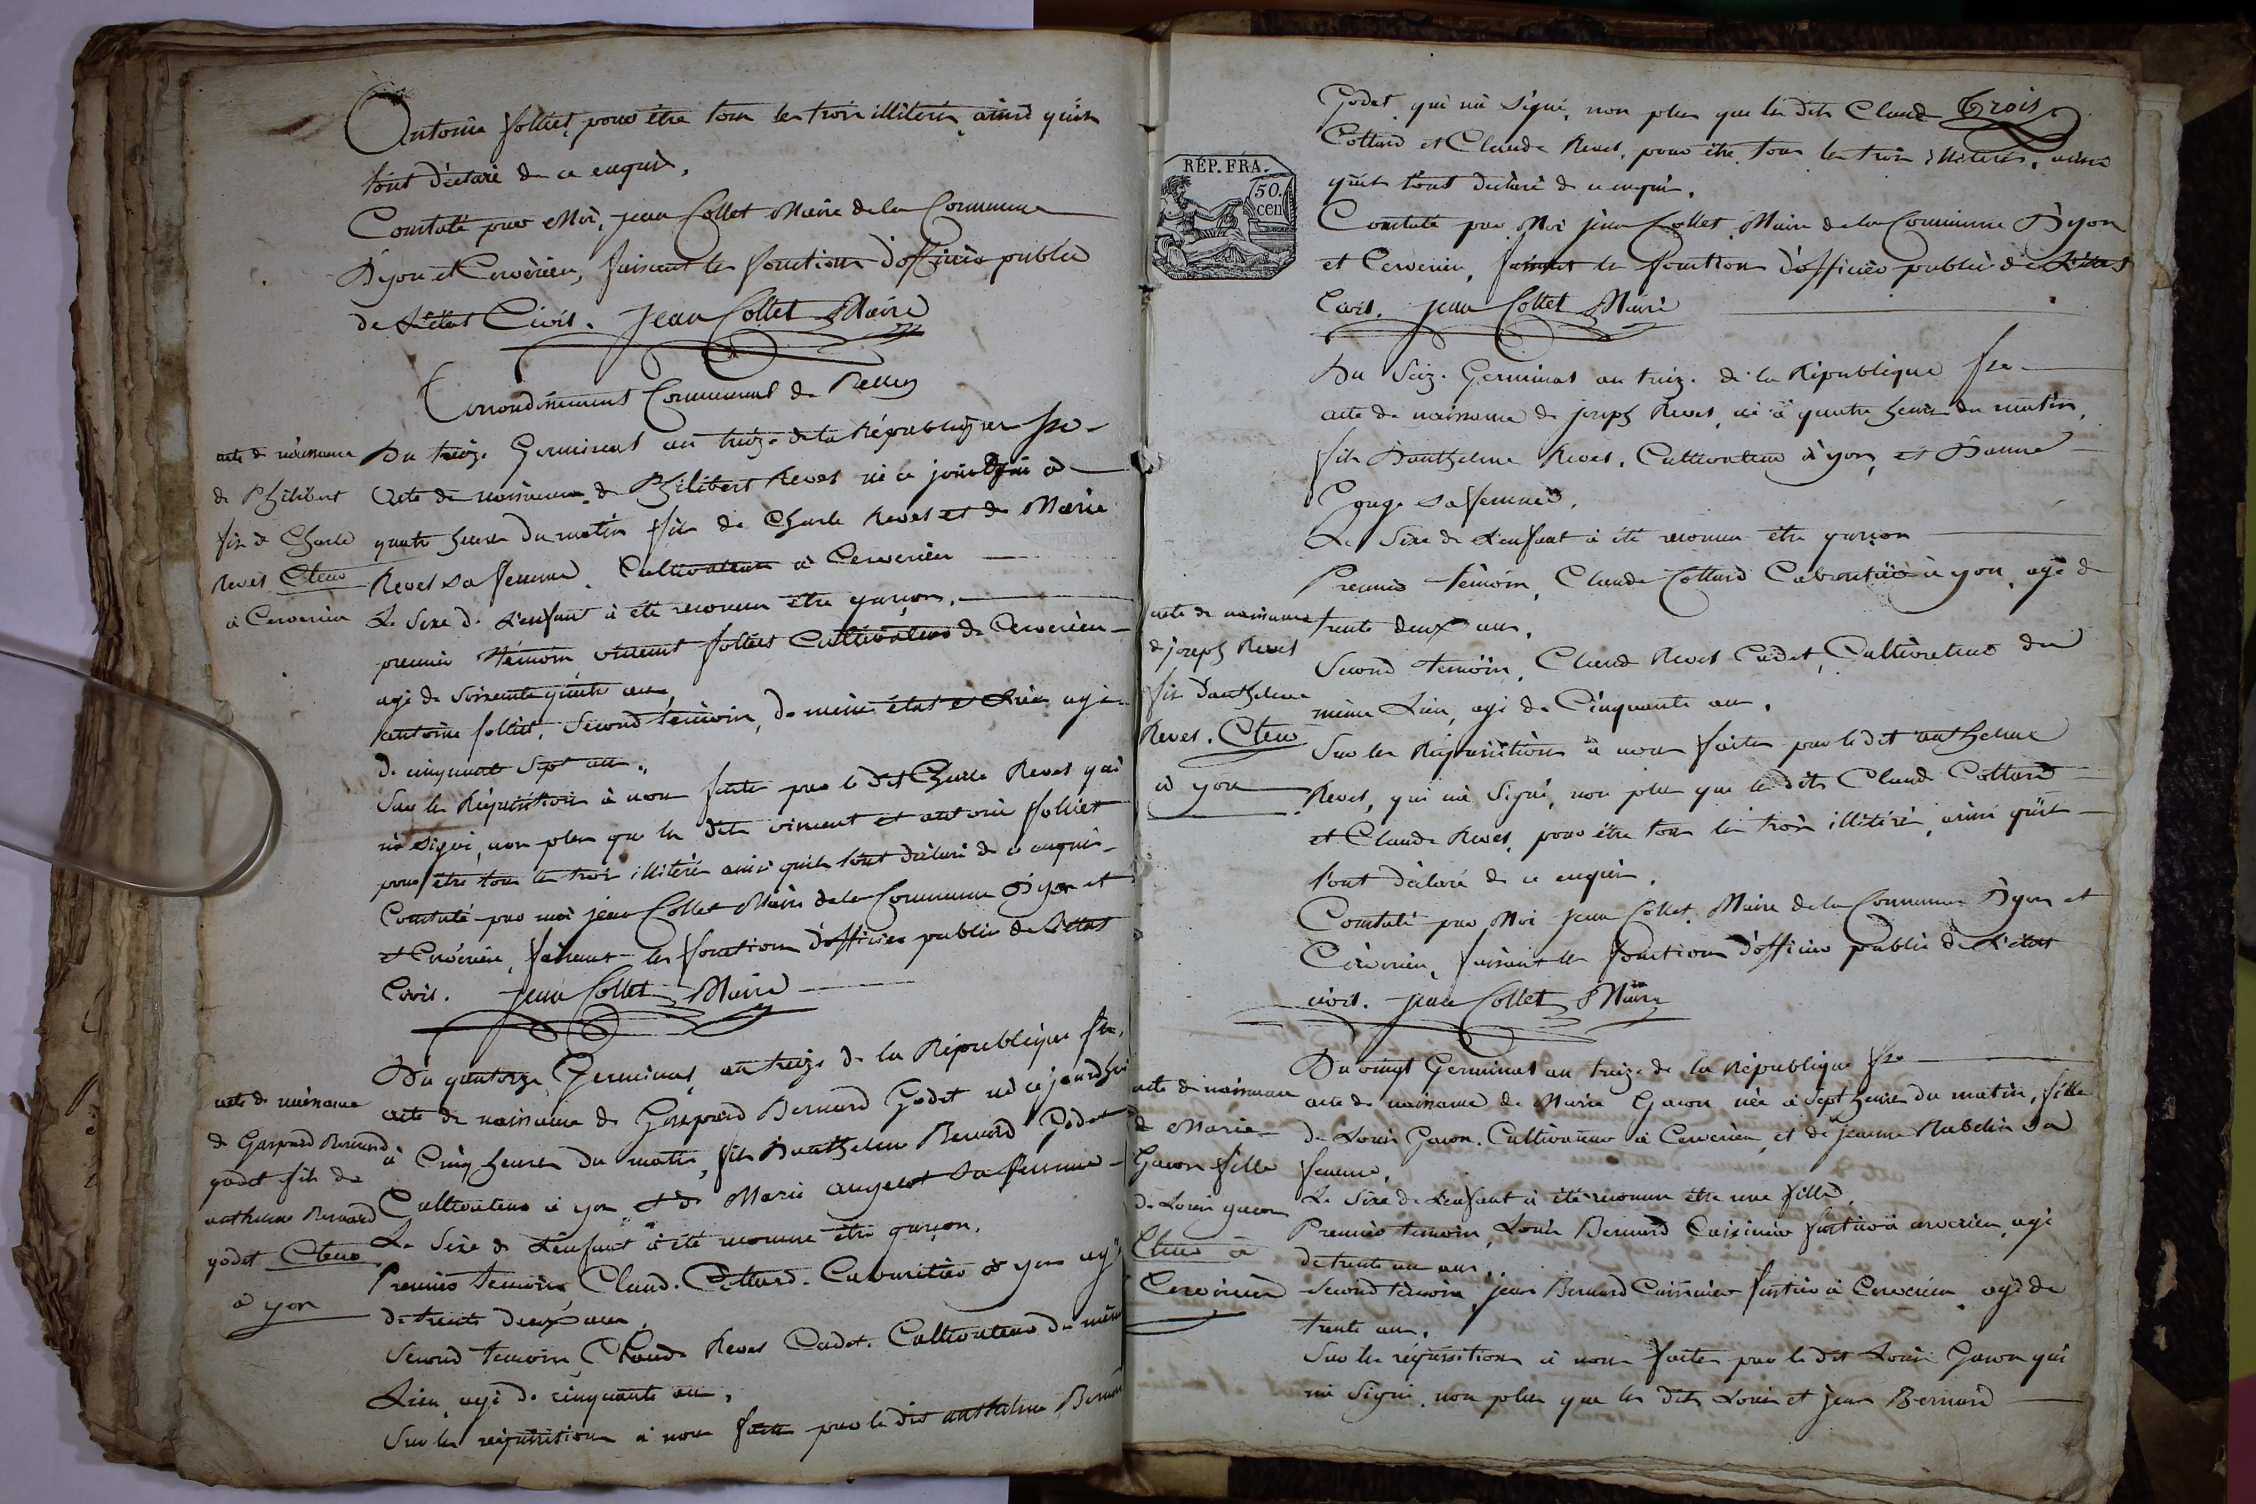 Antoine folliet, pour être tous les trois illiteré, ainsi qu'ils
l'ont déclaré de ce enquis.
Constaté par Moi, jean Collet Maire de la Commune
D'yon et Cerverieu, faisant les fonctions d'officier public
de L'état Civil. Jean Collet Maire
arrondissement Communal de Belley
acte de naissance
de Philibert
fils de Charle
Revet Cteur
à Cerverieu
Du treize Germinal an treize de la République fse
Acte de naissance de Philibert Revet né ce jourd'hui à
quatre heures du matin fils de Charle Revet et de Marie
Revet sa femme. Cultivateur à Cerverieu
Le sexe de L'enfant à été reconnu être garçon.
premier témoin vincent folliet Cultivateur de Cerverieu
agé de soixante quatre ans,
antoine folliet, second témoin, de même état et Lieu agé
de cinquante sept ans.
Sur les Réquisition à nous faite par le dit Charle Revet qui
n'a signé, non plus que les dits vincent et antoine folliet
pour être tous les trois illiteré ainsi qu'ils l'ont déclaré de ce enquis
Constaté par moi jean Collet Maire de la Commune D'yon et
et Cerverieu, faisant les fonctions d'officier public de L'état
Civil. Jean Collet Maire
acte de naissance
de Gaspard Bernard
godet fils de
anthelme Bernard
godet Cteur
à yon
Du quatorze Germinal an treize de la République fse,
acte de naissance de Gaspard Bernard Godet né ce jourd'hui
à Cinq heures du matin, fils D'anthelme Bernard Godet
Cultivateur à yon et de Marie angelot sa femme
Le Sexe de L'enfant à été reconnu être garçon.
Premier temoin Claude Cottard Cabaretier à yon agé
de trente deux ans,
Second temoin Claude Revet Cadet. Cultivateur du même
Lieu agé de cinquante ans,
Sur les requisition à nous faite par le dit anthelme Bernard
Trois
RÉP. FRA.
50.
cen
Godet qui n'a signé, non plus que les dits Claude
Cottard et Claude Revet, pour être tous les trois illiteré, ainsi
qu'ils l'ont déclaré de ce enquis.
Constaté par Moi jean Collet Maire de la Commune D'yon
et Cerverieu, faisant les fonction d'officier public de L'état
Civil. Jean Collet Maire
acte de naissance
de joseph Revet
fils d'anthelme
Revet. Cteur
à yon
Du Seize Germinal an treize de la République fse
acte de naissance de joseph Revet, né à quatre heures du matin,
fils D'anthelme Revet. Cultivateur à yon, et D'anne
Gouge sa femme.
Le Sexe de L'enfant à été reconnu être garçon
Premier témoin, Claude Cottard Cabaretier à yon, agé de
trente deux ans.
Second temoin, Claude Revet Cadet, Cultivateur du
même Lieu, agé de Cinquante ans.
Sur les Réquisition à nous faite par le dit anthelme
Revet, qui n'a signé, non plus que les dits Claude Cottard
et Claude Revet, pour être tous les trois illiteré, ainsi qu'ils
l'ont déclaré de ce enquis.
Constaté par Moi Jean Collet Maire de la Commune D'yon et
Cerverieu, faisant les fonction d'officier public de L'état
civil. Jean Collet Maire
acte de naissance
de Marie
Gacon fille
de Louis gacon
Cteur à
Cerverieu
Du vingt Germinal an treize de la République fse
acte de naissance de Marie Gacon née à sept heures du matin, fille
de Louis Gacon. Cultivateur à Cerverieu, et de jeanne Rabelin sa
femme.
Le Sexe de L'enfant à été reconnu être une fille.
Premier temoin, Louis Bernard à Cerverieu, agé
de trente un ans.
Second témoin, jean Bernard à Cerverieu, agé de
trente ans.
Sur les réquisition à nous faite par le dit Louis Gacon qui
n'a signé, non plus que les dits Louis et jean Bernard